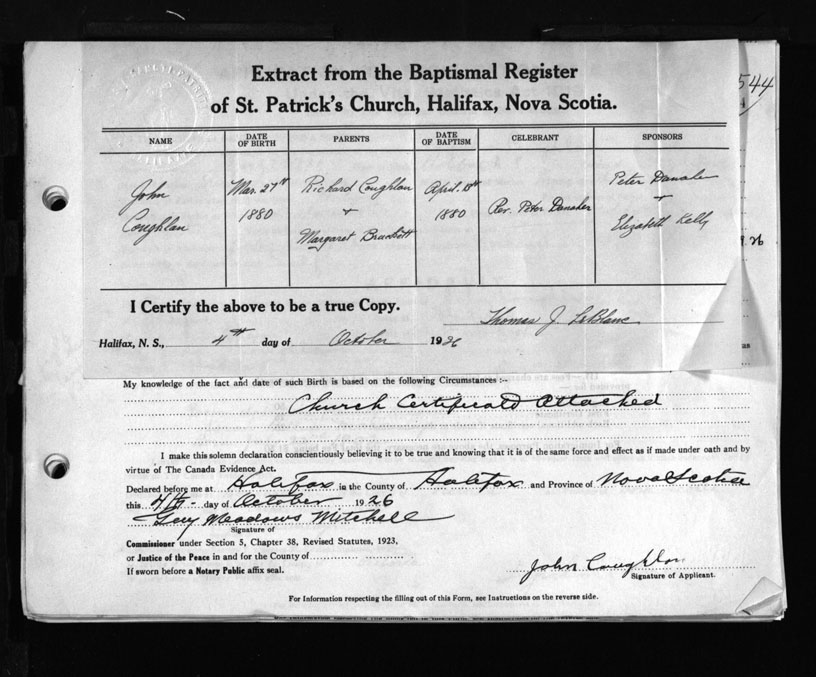 Extract from the Baptismal Register
of St. Patrick's Church, Halifax, Nova Scotia.
544
NAME
DATE
OF BIRTH
PARENTS
DATE
OF BAPTISM
CELEBRANT
SPONSORS
John
Coughlan
Mar. 27th
1880
Richard Coughlan
+
Margaret
April
1880
Rev. Peter Danaher
Peter Danaher
+
Elizabeth Kelly
26
I Certify the above to be a true Copy.
Thomas J. LeBlanc
Halifax, N. S., 4th day of October 1926
My knowledge of the fact and date of such Birth is based on the following Circumstances :--
Church Certificate Attached
I make this solemn declaration conscientiously believing it to be true and knowing that it is of the same force and effect as if made under oath and by
virtue of The Canada Evidence Act.
Declared before me at Halifax in the County of Halifax and Province of Nova Scotia
this 4th day of October 1926
Guy Meadows Mitchell
Signature of
Commissioner under Section 5, Chapter 38, Revised Statutes, 1923,
or Justice of the Peace in and for the County of
If sworn before a Notary Public affix seal.
John Coughlan
Signature of Applicant.
For Information respecting the filling out of this Form, see Instructions on the reverse side.